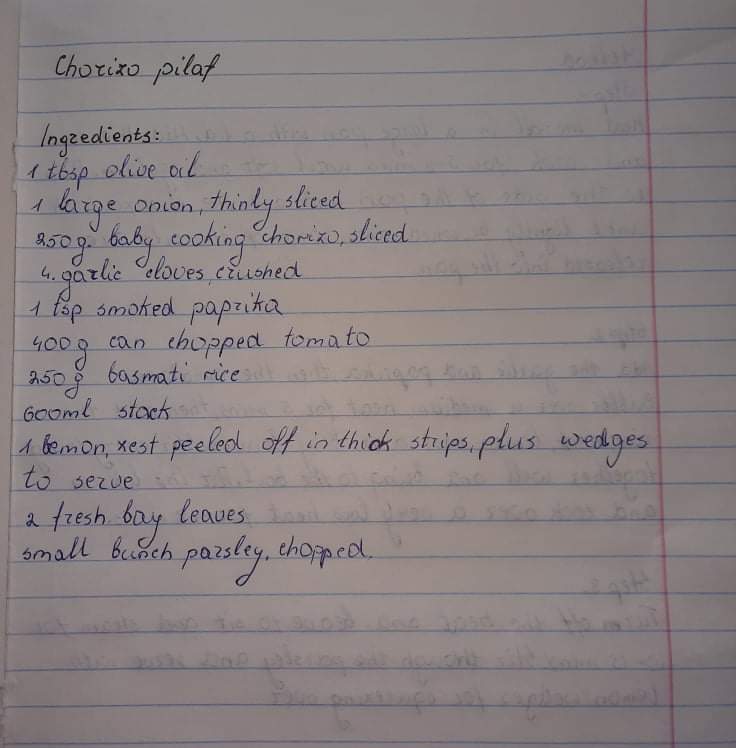 Chorizo pilaf
Ingredients:
1 tbsp olive oil
1 large onion, thinly sliced
250g. baby cooking chorizo, sliced
4. garlic cloves, crushed
1 tsp smoked paprika
400g can chopped tomato
250g basmati rice
600ml stock
1 lemon, zest peeled off in thick strips, plus wedges
to serve
2 fresh bay leaves
small bunch parsley, chopped.